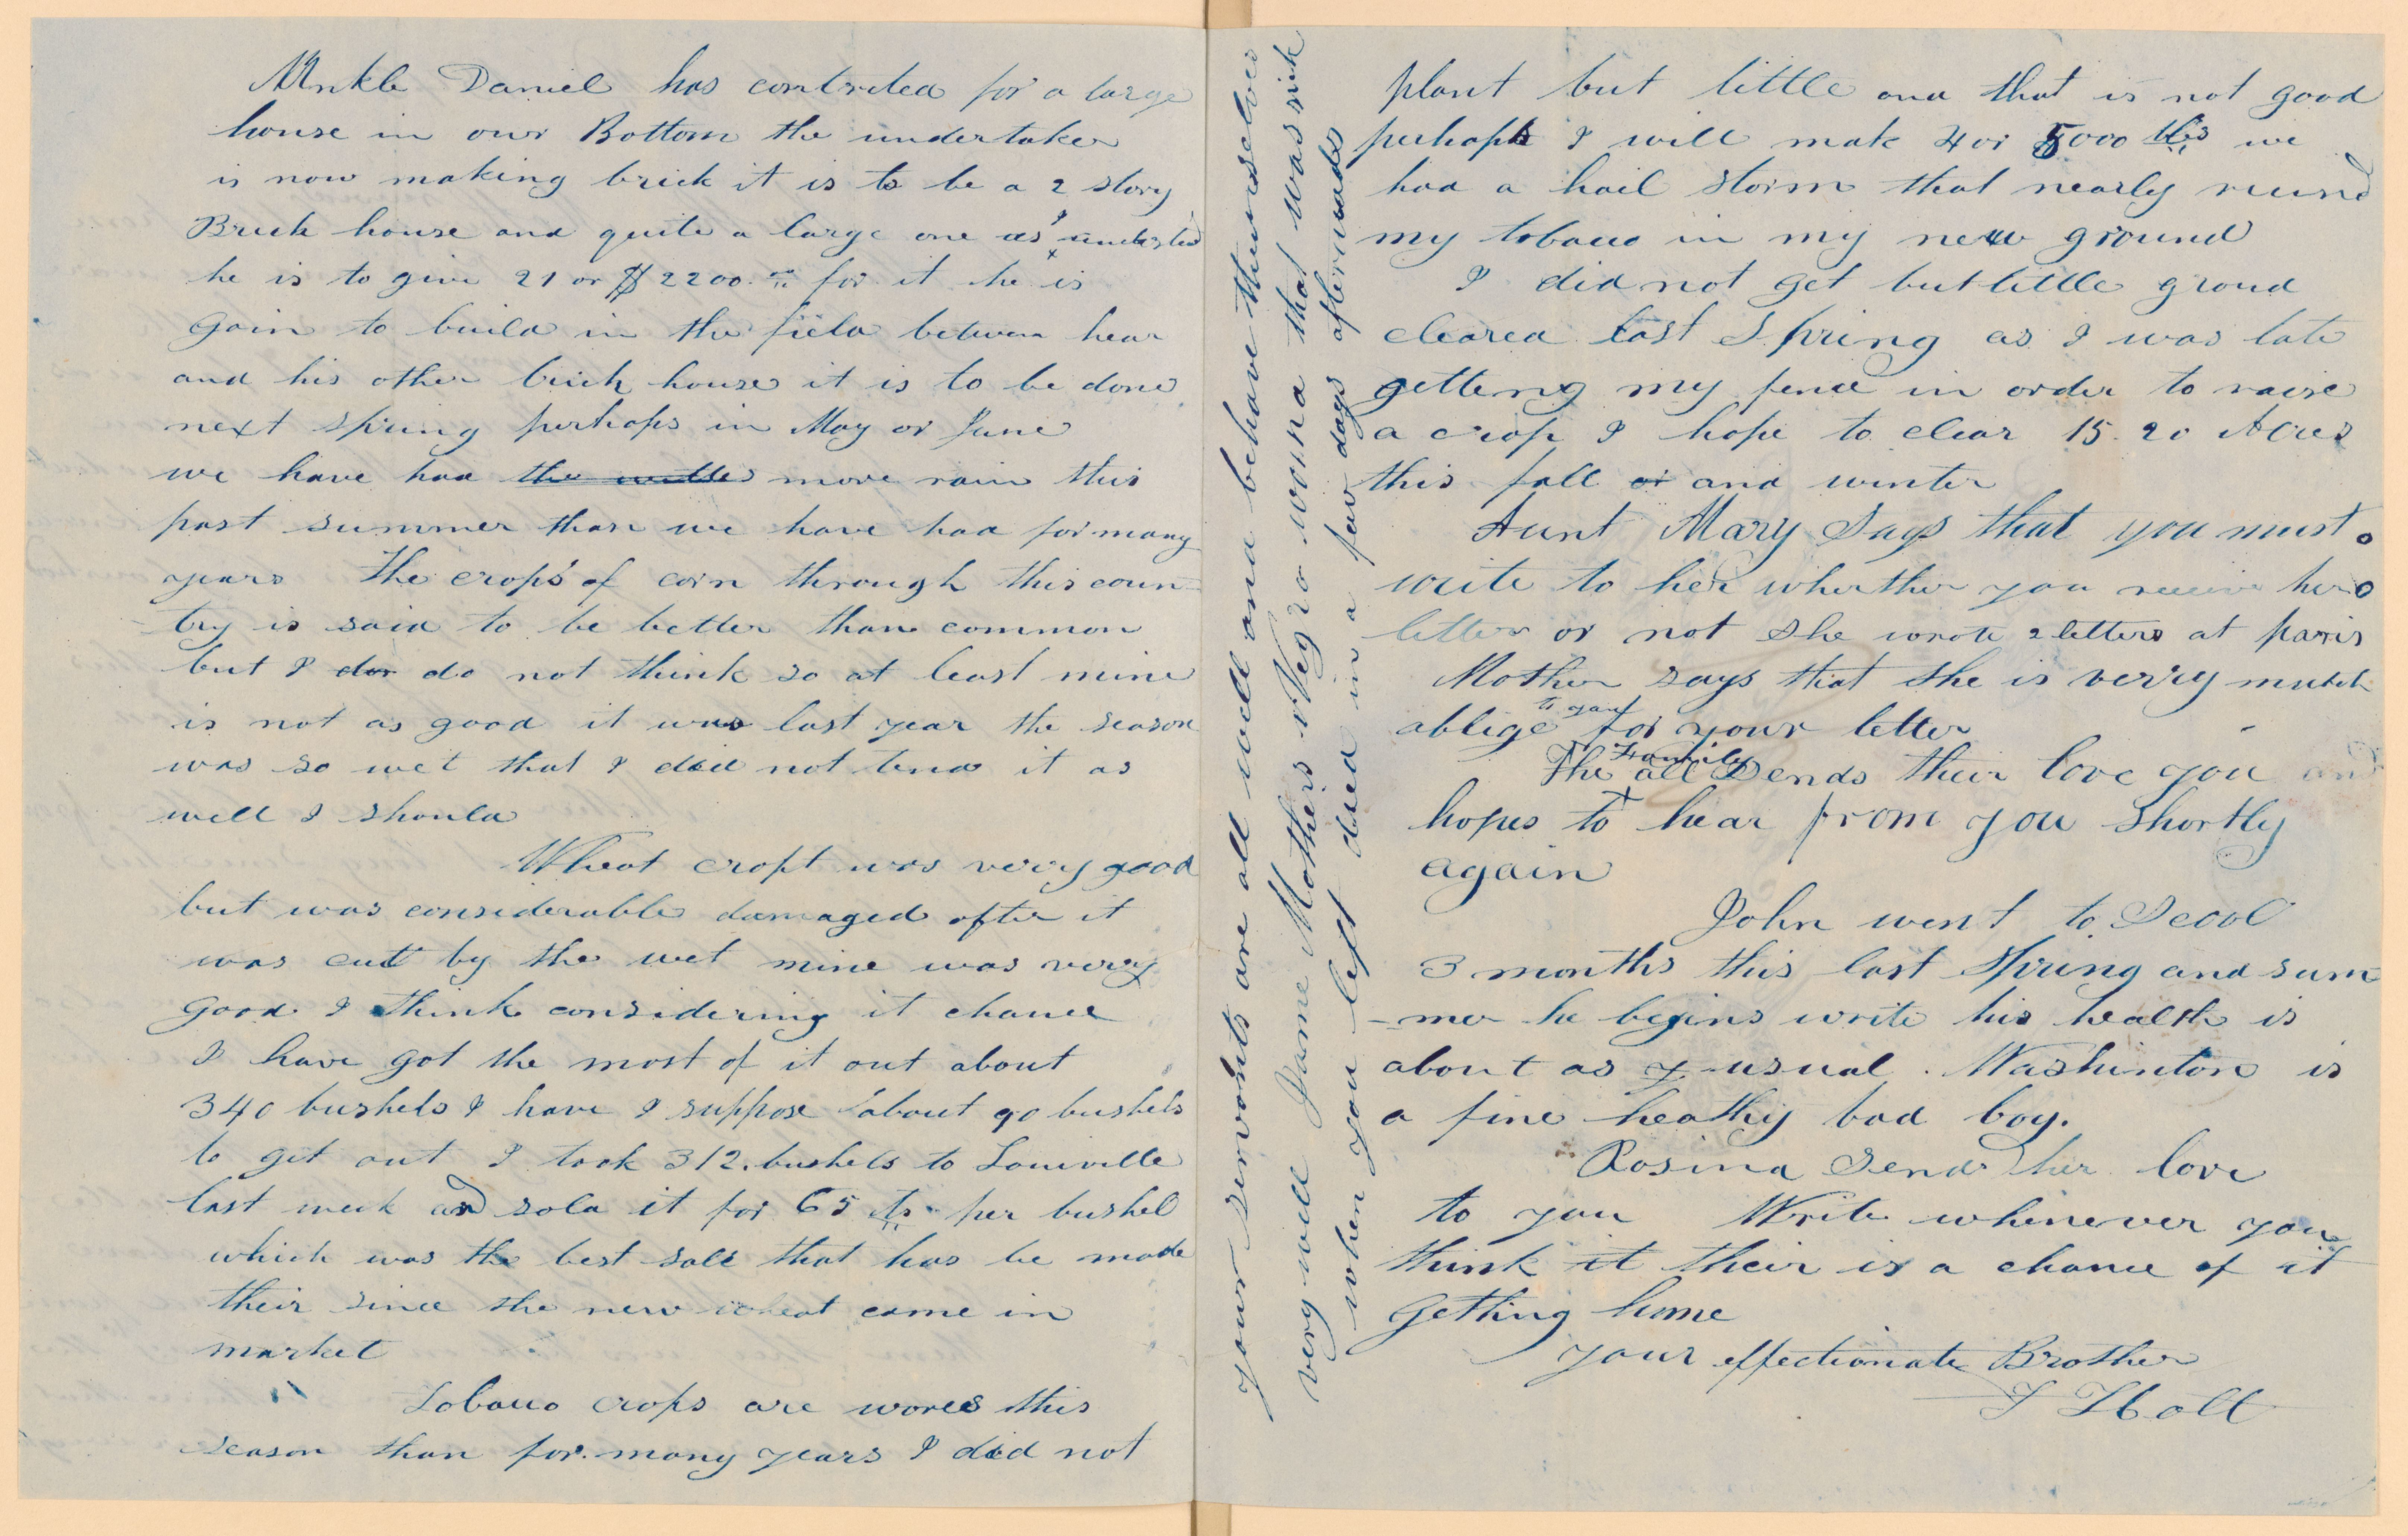 Unkle Daniel has contrcted for a large
house in our Bottom the undertaker
is now making brick it is to be a 2 story
Brick house and quite a large one as I understand
he is to give 21 or $2200.00 for it he is
goin to build in the field between hear
and his other brick house it is to be done
next spring perhaps in May or June
we have had the more rain this
past summer than we have had for many
years The crops of corn through this coun-
try is said to be better than common
but I dor do not think so at least mine
is not as good it was last year the season
was so wet that I did not tend it as
well I should
Wheat cropt was verry good
but was considerable damaged after it
was cut by the wet mine was verry
good I think considering it chance
I have got the most of it out about
340 bushels I have I suppose about 90 bushels
to get out I took 312. bushels to Louiville
last week and sold it for 65 cts per bushel
which was the best sale that has be made
their since the new wheat come in
market
Tobacco crops are worce this
season than for many years I did not
plant but little and that is not good
perhaps I will mak 4 or 5000 lbs we
had a hail storm that nearly ruind
my tobacco in my new ground
I did not get but little groud
cleared last Spring as I was late
getteng my fence in order to raise
a crop I hope to clear 15. 20 Acres
this fall or and winter
Aunt Mary Says that you must
write to her wherther you receive her
letters or not She wrote 2 letters at paris
Mother says that she is verry mutch
ablige to you for your letter
The Family all Sends their love you and
hopes to hear from you shortly
again
John went to Scool
3 months this last Spring and sum
-mer he begins write his health is
about as y usual. Washinton is
a fine heathy bad boy.
Rosina Sends her love
to you Write whenever you
think it their is a chance of it
getting home
your effectionate Brother
T Holt
your servants are all well and behave themselves
very well Jame Mothers Negro woma that was sick
when you left died in a few days afterwards